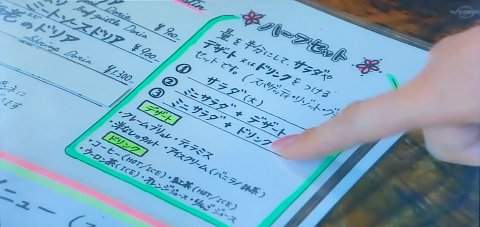 TV TOKYO
¥900
ミートソースドリア
¥900
のドリア
Doria
¥1,300
ハーフセット
量を半分にして、サラダや
デザート 又は ドリンクをつける
セットです。(スパゲッティ・リゾット・
① サラダ(大)
② ミニサラダ + デザート
③ ミニサラダ + ドリンク
デザート
・クレームブリュレ ・ティラミス
・アイスクリーム(バニラ/抹茶)
ドリンク
・コーヒー(HOT/ICE) ・紅茶(HOT/ICE)
・ウーロン茶(ICE) ・オレンジジュース ・りんごジュース
ニュー